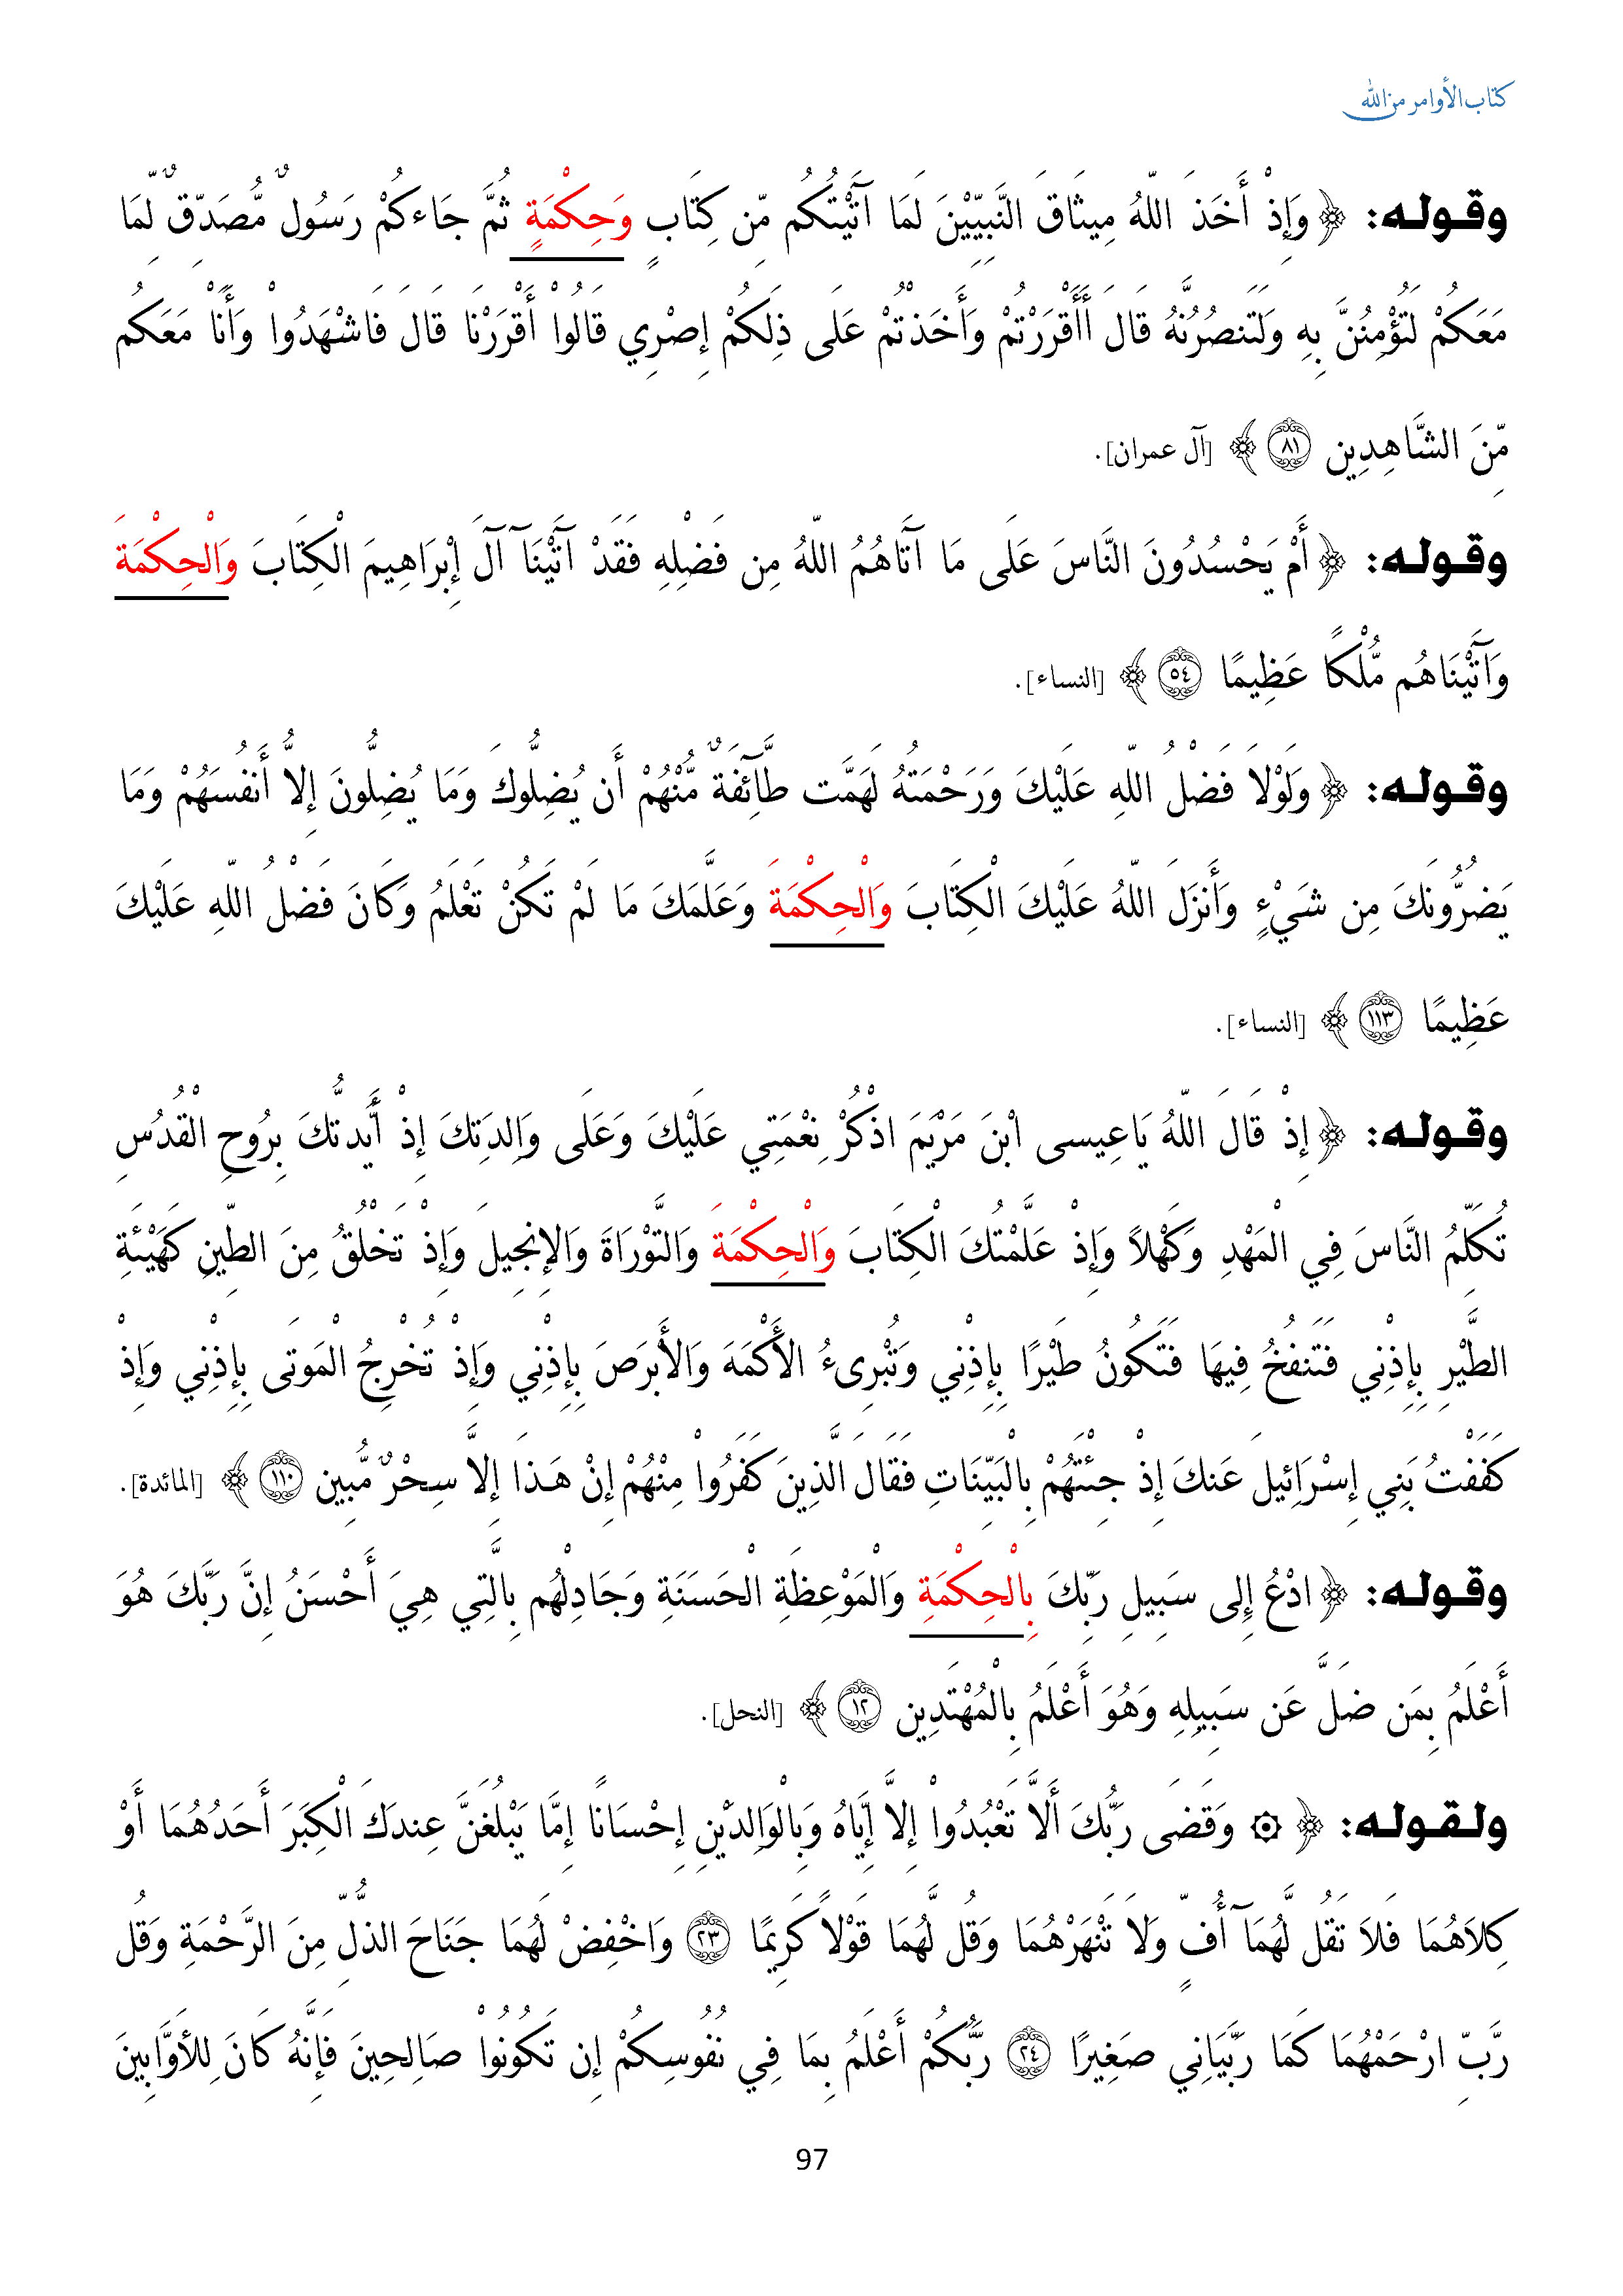 كتاب الأوامر من الله
وقـولـه: ﴿ وَإِذْ أَخَذَ اللّهُ مِيثَاقَ النَّبِيِّيْنَ لَمَا آتَيْتُكُم مِّن كِتَابٍ وَحِكْمَةٍ ثُمَّ جَاءكُمْ رَسُولٌ مُّصَدِّقٌ لِّمَا
مَعَكُمْ لَتُؤْمِنُنَّ بِهِ وَلَتَنصُرُنَّهُ قَالَ أَأَقْرَرْتُمْ وَأَخَذْتُمْ عَلَى ذَلِكُمْ إِصْرِي قَالُوا أَقْرَرْنَا قَالَ فَاشْهَدُواْ وَأَنَاْ مَعَكُم
مِّنَ الشَّاهِدِين ٨١ ﴾ [آل عمران].
وقـولـه: ﴿ أَمْ يَحْسُدُونَ النَّاسَ عَلَى مَا آتَاهُمُ اللّهُ مِن فَضْلِهِ فَقَدْ آتَيْنَا آلَ إِبْرَاهِيمَ الْكِتَابَ وَالْحِكْمَةَ
وَآتَيْنَاهُم مُّلْكًا عَظِيمًا ٥٤ ﴾ [النساء].
وقـولـه: ﴿ وَلَوْلاَ فَضْلُ اللّهِ عَلَيْكَ وَرَحْمَتُهُ لَهَمَّت طَّآئِفَةٌ مُّنْهُمْ أَن يُضِلُّوكَ وَمَا يُضِلُّونَ إِلاُّ أَنفُسَهُمْ وَمَا
يَضُرُّونَكَ مِن شَيْءٍ وَأَنزَلَ اللّهُ عَلَيْكَ الْكِتَابَ وَالْحِكْمَةَ وَعَلَّمَكَ مَا لَمْ تَكُنْ تَعْلَمُ وَكَانَ فَضْلُ اللّهِ عَلَيْكَ
عَظِيمًا ١١٣ ﴾ [النساء].
وقـولـه: ﴿ إِذْ قَالَ اللّهُ يَاعِيسى ابْنَ مَرْيَمَ اذْكُرْ نِعْمَتِي عَلَيْكَ وَعَلَى وَالِدَتِكَ إِذْ أَيَّدتُّكَ بِرُوحِ الْقُدُسِ
تُكَلِّمُ النَّاسَ فِي الْمَهْدِ وَكَهْلاً وَإِذْ عَلَّمْتُكَ الْكِتَابَ وَالْحِكْمَةَ وَالتَّوْرَاةَ وَالإِنجِيلَ وَإِذْ تَخْلُقُ مِنَ الطِّينِ كَهَيْئَةِ
الطَّيْرِ بِإِذْنِي فَتَنفُخُ فِيهَا فَتَكُونُ طَيْرًا بِإِذْنِي وَتُبْرِىءُ الأَكْمَهَ وَالأَبْرَصَ بِإِذْنِي وَإِذْ تُخْرِجُ الْمَوتَى بِإِذْنِي وَإِذْ
كَفَفْتُ بَنِي إِسْرَائِيلَ عَنكَ إِذْ جِئْتَهُمْ بِالْبَيِّنَاتِ فَقَالَ الَّذِينَ كَفَرُواْ مِنْهُمْ إِنْ هَـذَا إِلاَّ سِحْرٌ مُّبِين ١١٠ ﴾ [المائدة].
وقـولـه: ﴿ ادْعُ إِلِى سَبِيلِ رَبِّكَ بِالْحِكْمَةِ وَالْمَوْعِظَةِ الْحَسَنَةِ وَجَادِلْهُم بِالَّتِي هِيَ أَحْسَنُ إِنَّ رَبَّكَ هُوَ
أَعْلَمُ بِمَن ضَلَّ عَن سَبِيلِهِ وَهُوَ أَعْلَمُ بِالْمُهْتَدِين ١٢ ﴾ [النحل].
ولـقـولـه: ﴿ ۞ وَقَضَى رَبُّكَ أَلاَّ تَعْبُدُواْ إِلاَّ إِيَّاهُ وَبِالْوَالِدَيْنِ إِحْسَانًا إِمَّا يَبْلُغَنَّ عِندَكَ الْكِبَرَ أَحَدُهُمَا أَوْ
كِلاَهُمَا فَلاَ تَقُل لَّهُمَآ أُفٍّ وَلاَ تَنْهَرْهُمَا وَقُل لَّهُمَا قَوْلاً كَرِيمًا ٢٣ وَاخْفِضْ لَهُمَا جَنَاحَ الذُّلِّ مِنَ الرَّحْمَةِ وَقُل
رَّبِّ ارْحَمْهُمَا كَمَا رَبَّيَانِي صَغِيرًا ٢٤ رَّبُّكُمْ أَعْلَمُ بِمَا فِي نُفُوسِكُمْ إِن تَكُونُواْ صَالِحِينَ فَإِنَّهُ كَانَ لِلأَوَّابِينَ
97